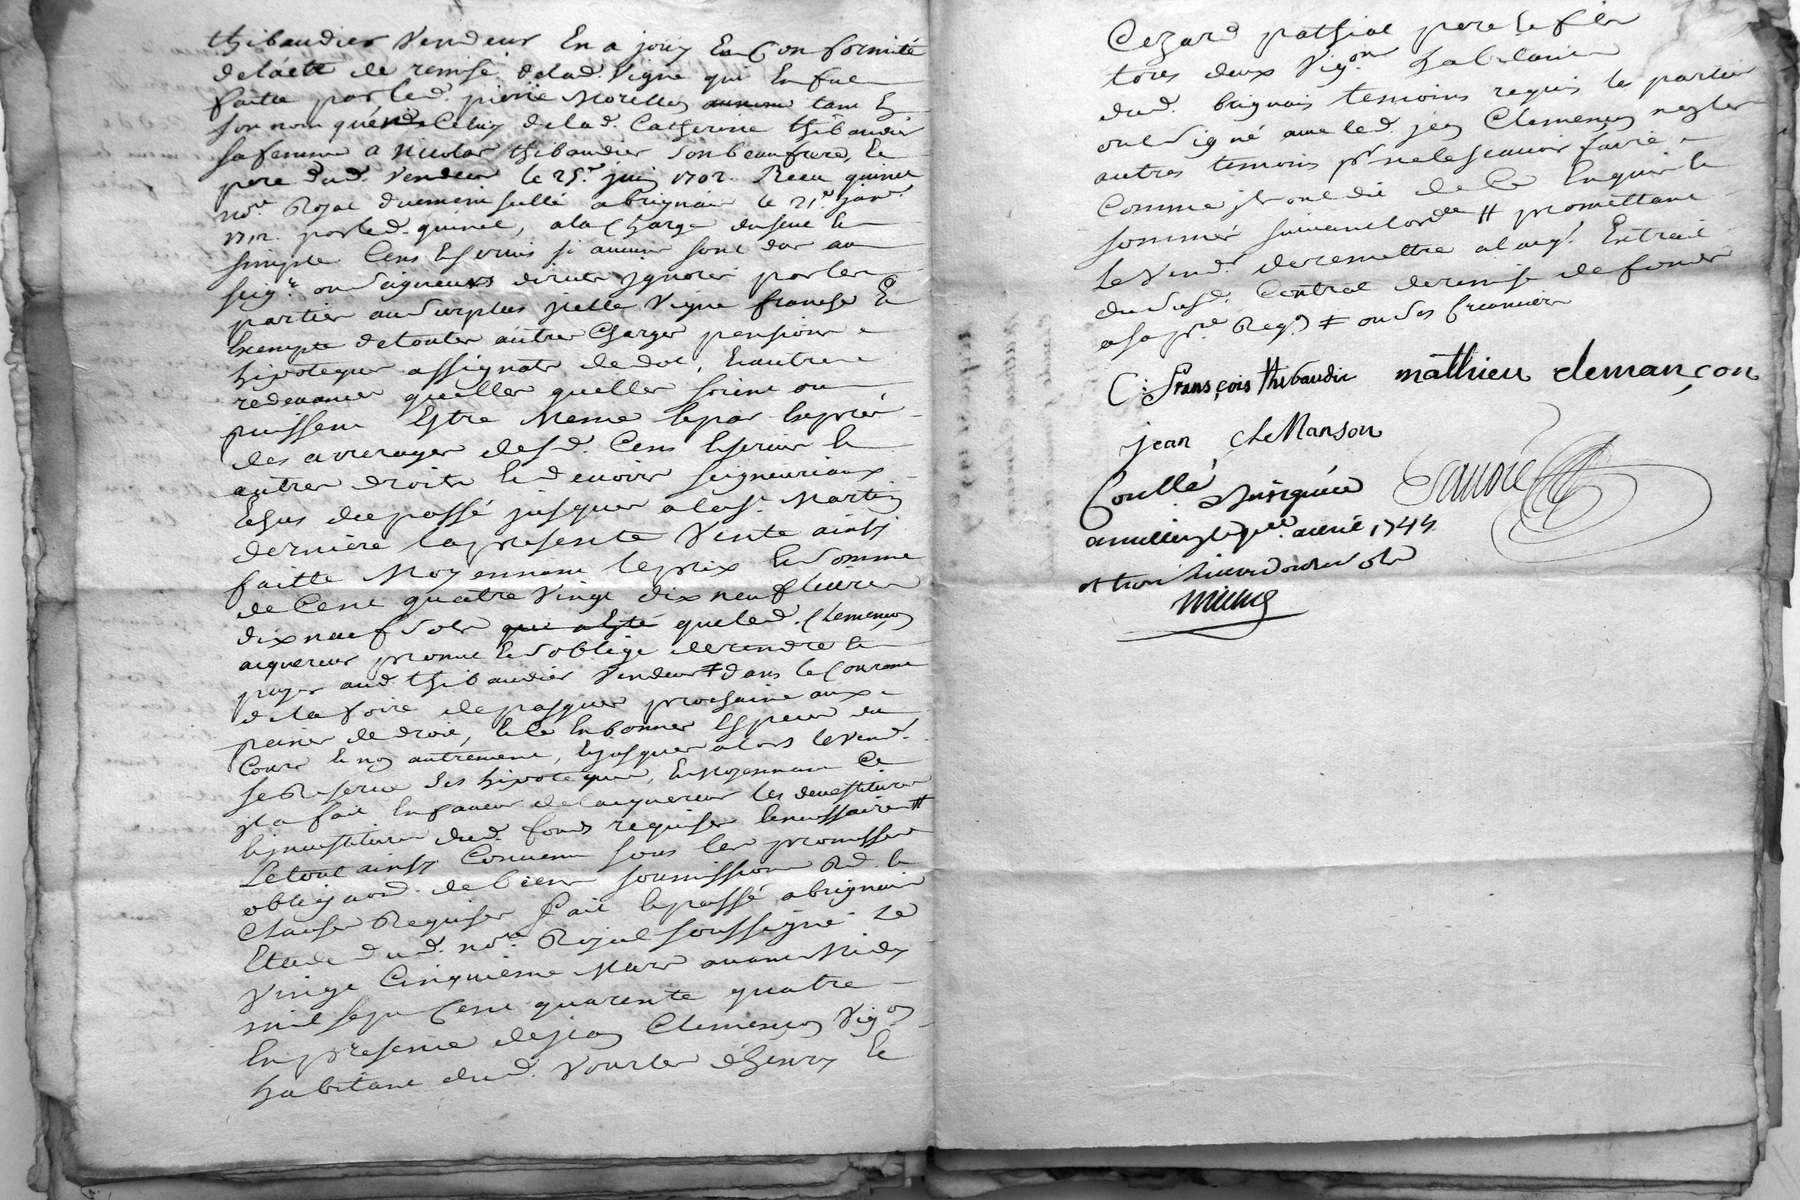 thibaudier Vendeur En a jouy En Conformité
delacte de remise delad. Vigne qui En fut
faitte par led. pierre Morellon tant En
son nom quen Celuy delad. Catherine thibaudier
sa femme a nicolas thibaudier son beaufrere, Et
pere dud. Vendeur le 25e. juin 1702. Receu quinet
nore. Royal duement scellé a brignais le 21e. janr.
1712. par led. quinet, ala Charge du seul Et
simple Cens Et servis si aucuns sont dus au
seigr. ou seigneurs directs ignorés par les
parties au surplus jcelle Vigne franche Et
Exempte de toutes autres Charges pensions
hipoteques assignats de dot, Et autres
redevances quelles quelles soient ou
puissent Estre Meme Et par Exprés
des arrerages desd. Cens Et servis Et
autres droits Et devoirs seigneuriaux
Echus du passé jusques a la st. Martin
derniere la presente Vente ainsi
faitte Moyennant le prix Et somme
de Cent quatre Vingt dix neuf livres
dix neuf sols que led. Clemençon
aquereur promet Et s'oblige de rendre Et
payer aud. thibaudier Vendeur ‡ dans le Courant
de la foire de pasques prochaine aux
peines de droit,
Cours Et non autrement, Et jusques alors le Vendr.
se Reserve ses hipoteques, Et Moyennant Ce
jl a fait En faveur de l'aquereur les devestiture
Et jnvestiture dud. fonds requises Et necessaires #
Le tout ainsy Convenu sous les promesses
obligaon. de biens soumissions Rd. Et
Clauses Requises fait Et passé a brignais
Etude dud. nore. Royal soussigné Le
Vingt Cinquieme Mars avant Midy
mil sept Cent quarente quatre
En presence de jean Clemençon Vigon
habitant dud. Vourles d'henry Et
Cezard pathiot pere Et fils
tous deux Vigons habitants
dud. brignais temoins requis les parties
ont signé avec led. jean Clemençon non les
autres temoins pr. ne le scavoir faire
Comme jls ont dit de Ce Enquis Et
sommés suivant lordce # promettant
Le Vendr. de remettre a laqr. Extrait
du susd. Contrat de remise de fonds
a sa pre. Reqon ‡ ou ses Creanciers
C: François thibaudie mathieu clemançon
jean cleManson
Conllé Insinué
a millery le pre. avril 1744